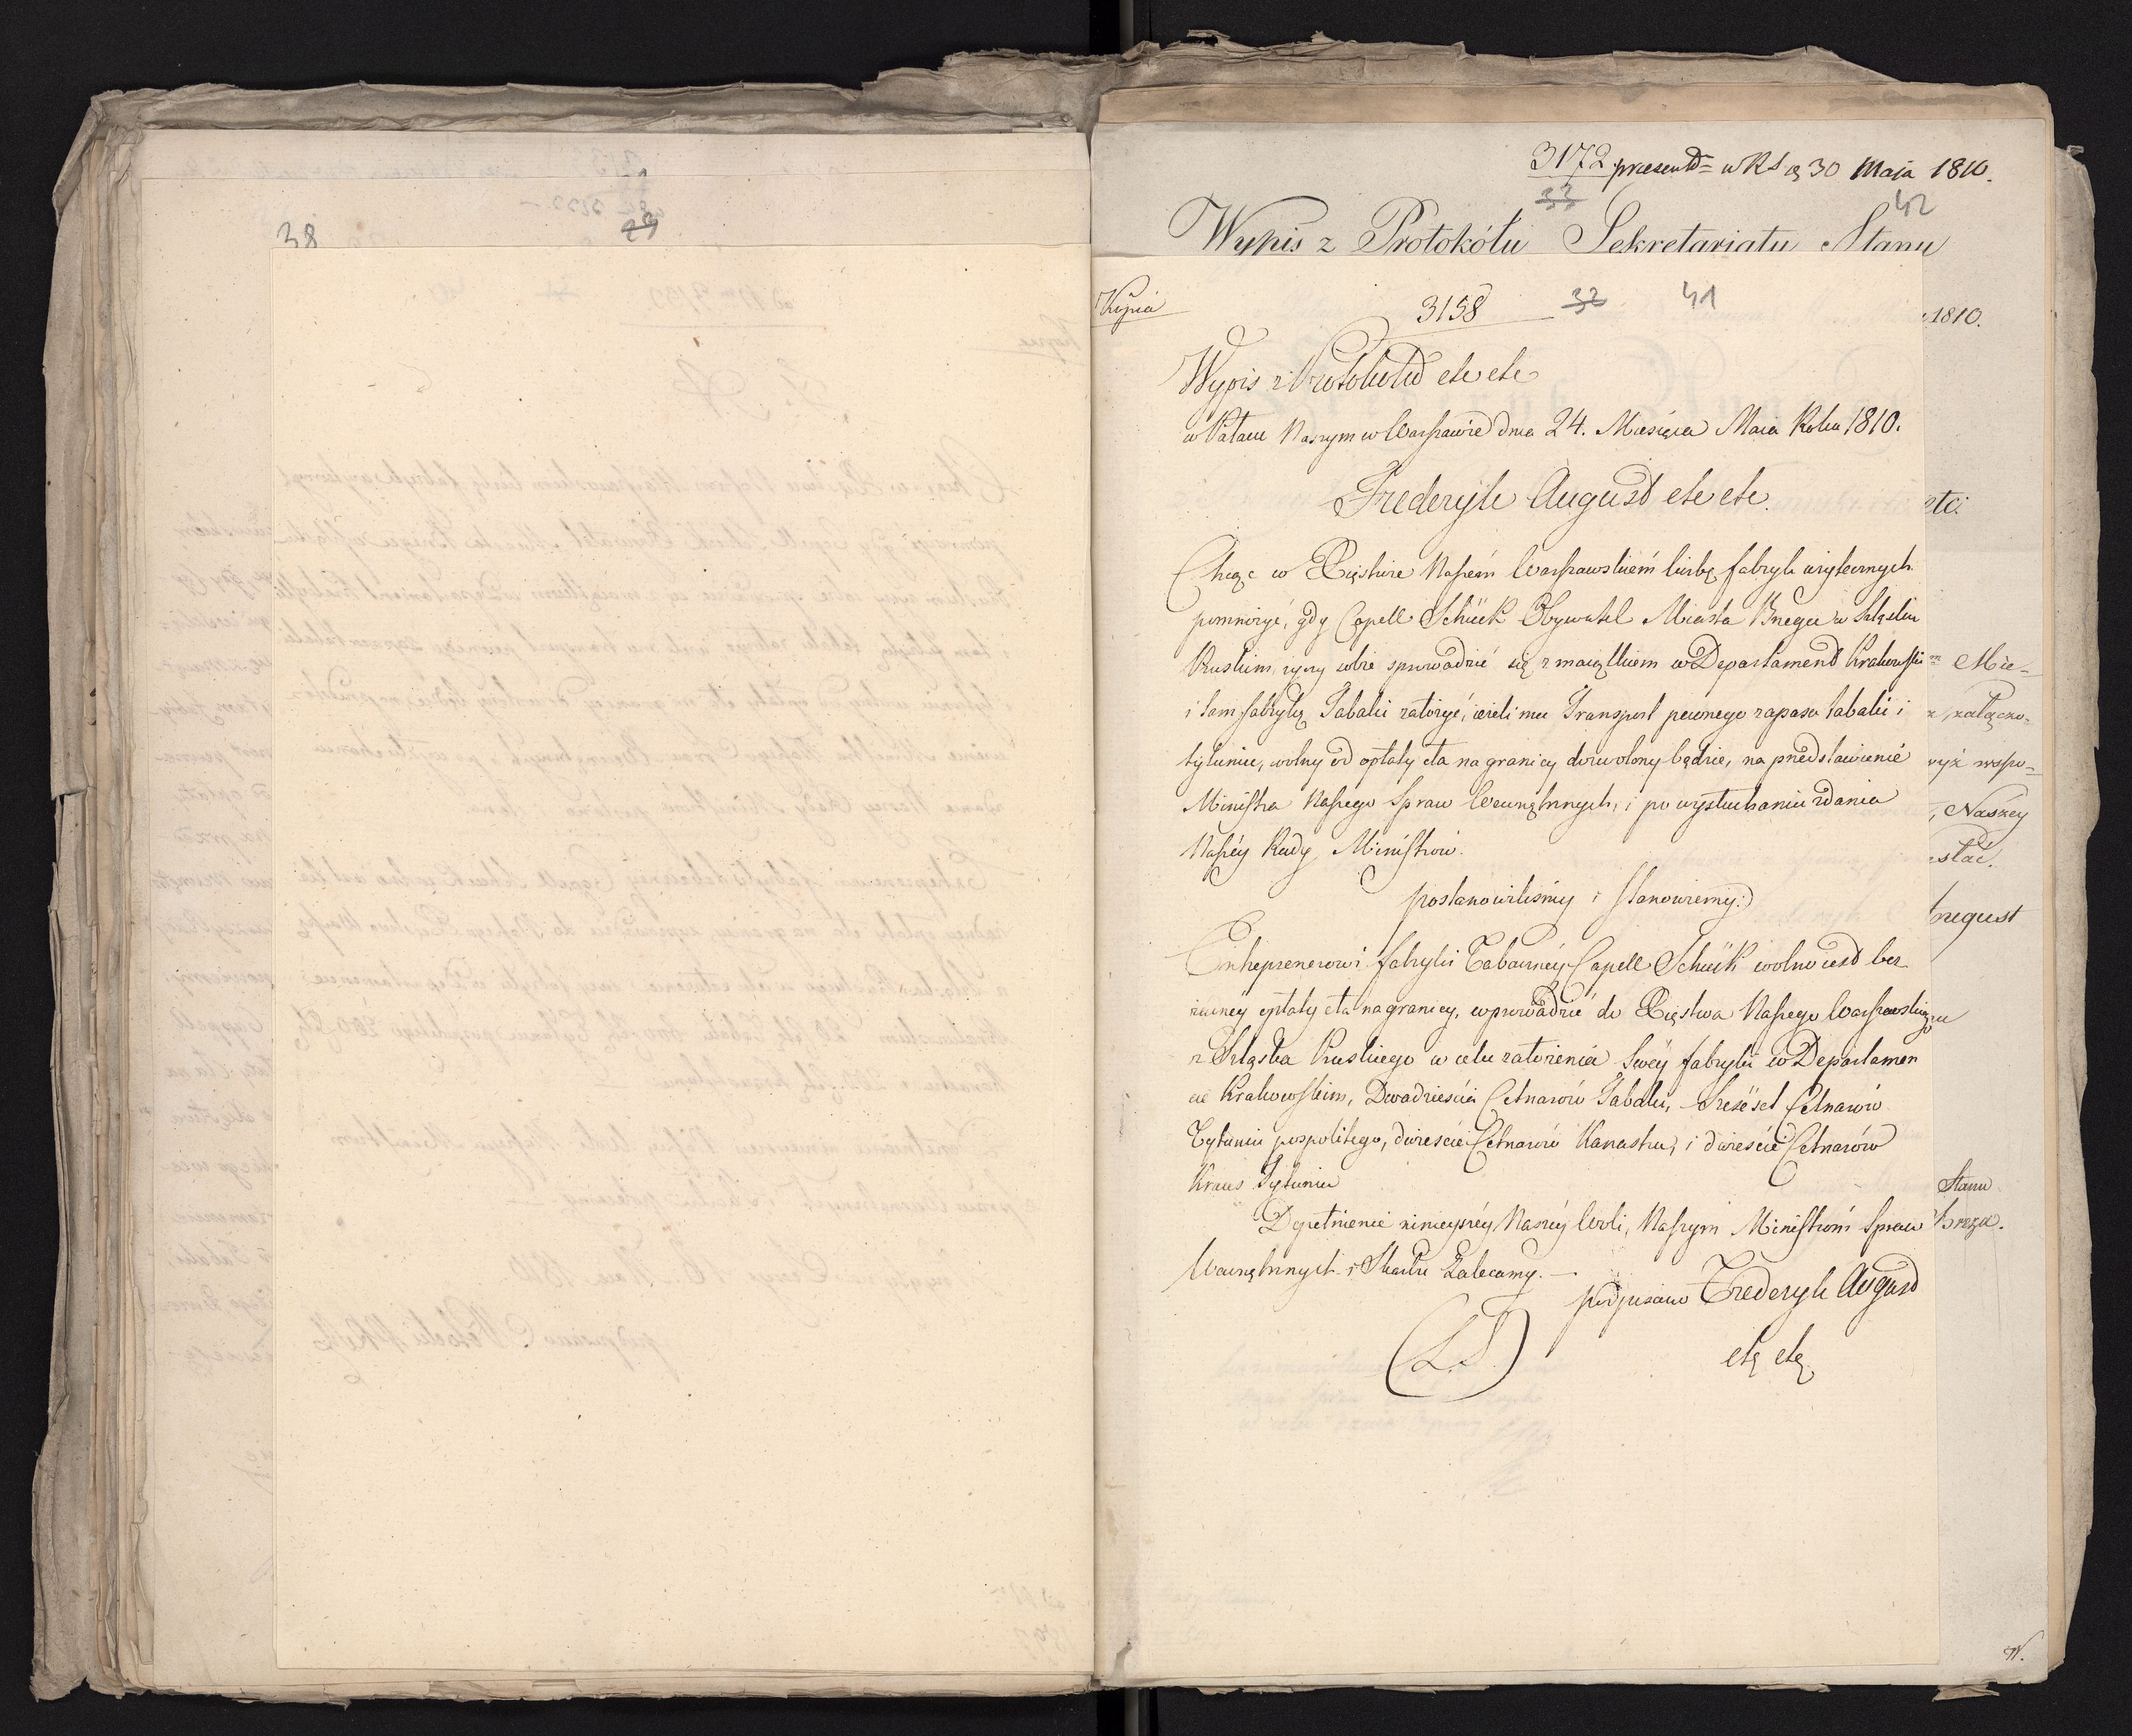 38
29
3172 praesentd= w RS d 30 Maja 1810.
33 42
Wypis z Protokółu Sekretariatu Stanu
Kopia
3158 32 41
1810.
Wypis z Protokołu etc etc
w Pałacu Naszym w Warszawie dnia 24. Miesiąca Maia Roku 1810.
Fryderyk August etc etc.
etc.
Chcąc w Xięstwie Naszém Warszawskiém liczbę fabryk użytecznych
pomnożyć, gdy Capell Schück Obywatel Miasta Brzegu w Szląsku
Pruskim, życzy sobie sprowadzić się z maiątkiem w Departament Krakowski
i tam fabrykę Tabaki założyć, ieżeli mu Transport pewnego zapasu tabaki i
tytuniu, wolny od opłaty cła na granicy dozwolony będzie, na przedstawienie
Ministra Naszego Spraw Wewnętrznych, i po wysłuchaniu zdania
Naszéy Rady Ministrów.
Mie-
załączo-
wyż wspo-
, Naszey
słać.
August
postanowiliśmy i stanowiemy:
Entreprenerowi fabryki Tabaczney Capell Schück wolno iest bez
żadnéy opłaty cła na granicy, wprowadzić do Xięstwa Naszego Warszawskiego
z Szląska Pruskiego w celu założenia Swéy fabryki w Departamen
cie Krakowskim, Dwadzieścia Cetnarów Tabaki, Sześćset Cetnarów
Tytuniu pospolitego, dwieście Cetnarów Kanastru, i dwieście Cetnarów
Kraus Tytuniu
Dopełnienie ninieyszéy Naszéy Woli, Naszym Ministróm Spraw
Wewnętrznych i Skarbu Zalecamy. —
podpisano Fryderyk August
(L.S.)
etc etc
Stanu
Breza.